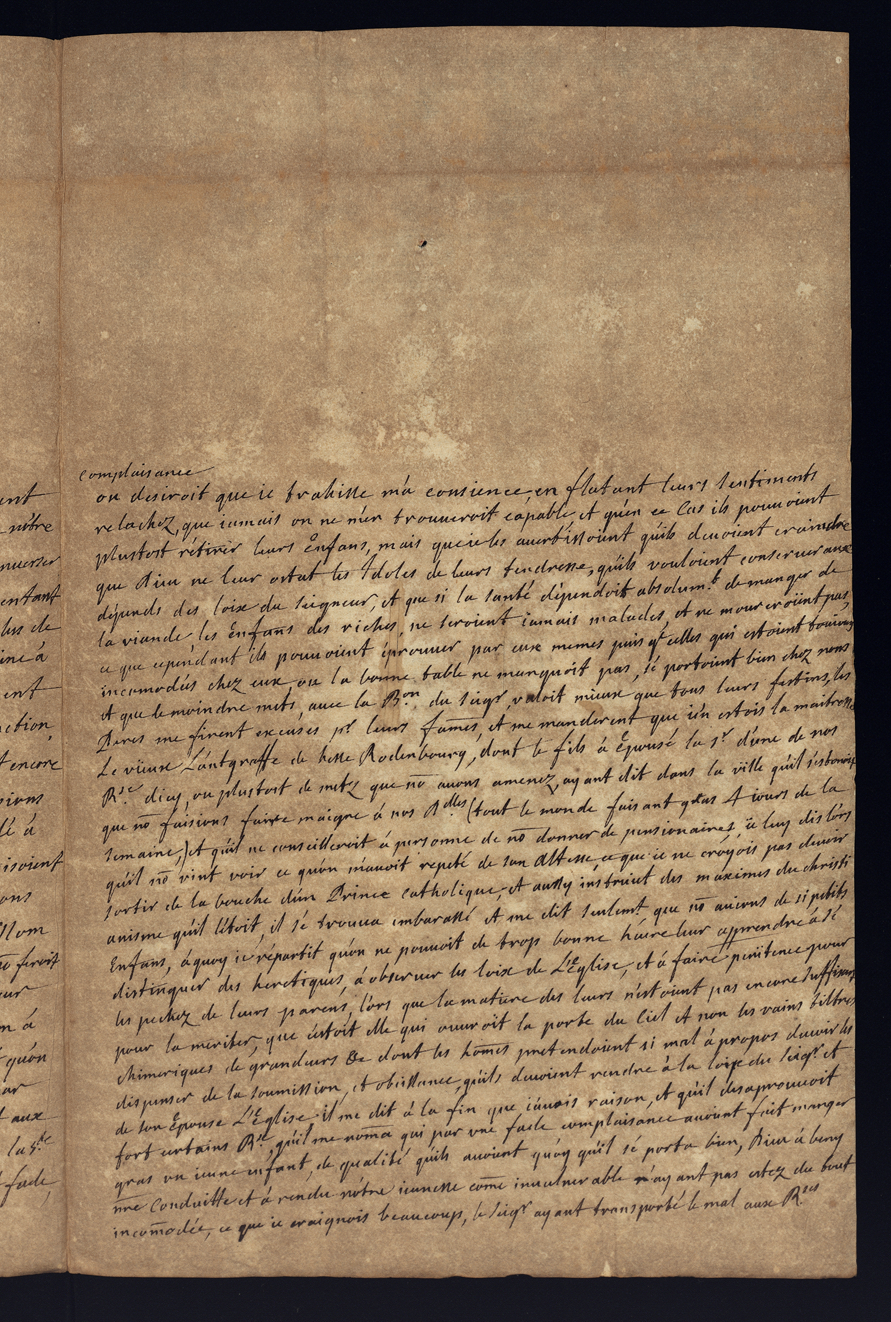 ent
nôtre
nverser
entant
lus de
ine à
ent
ction,
t encore
sions
lé à
isoient
ons
ferois
ur
n à
qu'on
ar
t aux
la s.te
facile,
complaisance
ou desiroit que ie trahisse ma consience, en flatant leurs sentiments
relachez, que iamais on ne m'en trouveroit capable, et qu'en ce cas ils pouvoient
plustost rétirér leurs Enfans, mais que ie les auertissoient qu'ils devoient craindre
que Dieu ne leur ostat les Idoles de leurs tendresse, qu'ils vouloient conserver aux
dépends des loix du seigneur, et que si la santé dépendoit absolum.t de manger de
la viande les Enfans des riches, ne seroient iamais malades, et ne moureroient pas,
ce que cependant ils pouvoient éprouver par eux memes puis q.e celles qui estoient toujours
incomodés chez eux ou la bonne table ne manquoit pas, sé portoient bien chez nous
et que le moindre mets, avec la B.on du seigr. valoit mieux que tous leurs festins, les
Peres me firent excuses pr. leurs fames, et me manderent que i'en estois la maitresse
Le vieux Lantgraffe de hesse Rodenbourg, dont le fils à Epousé la sr. d'une de nos
R.se d'icy, ou plustoit de metz que no avons amenez, ayant dit dans la ville qu'il s'estonoit
que no faisions faire maigre à nos D.lles (tout le monde faisant gras 4 iours de la
semaine,) et qu'il ne conseilleroit à personne de no donner de pensionaires, ie luy dis lors
qu'il no vint voir ce qu'on m'avoit repeté de son Altesse, ce que ie ne croyois pas devoir
sortir de la bouche d'un Prince catholique, et aussy instruit des maximes du christi
anisme qu'il l'étoit, il sé trouva embarassé et me dit seulemt. que no avions de si petits
Enfans, à quoy ie répartit qu'on ne pouvoit de trop bonne heure leur apprendre à sé
distinguer des heretiques, à observer les loix de L'Eglise, et à faire penitence pour
les pechez de leurs parens, lors que la matiere des leurs n'estoient pas encore suffisant
pour la mériter, que c'estoit elle qui ouvroit la porte du Ciel et non les vains tiltres
chimeriques de grandeurs &c dont les homes pretendoient si mal à propos devoir les
dispenser de la soumission, et obeissance qu'ils devoient rendre à la loix du seigr. et
de son Epouse L'Eglise il me dit à la fin que i'avois raison, et qu'il desaprouvoit
fort certains qu'il me noma qui par une facile complaisance avoient fait manger
gras un ieune enfant, de qualité qu'ils avoient quoy qu'il sé porta bien, Dieu à beny
nre Conduitte et à rendu nôtre ieunesse come invulnerable n'ayant pas estez du tout
incomodée, ce que ie craignois beaucoup, le seigr. ayant transporté le mal aux R.ses